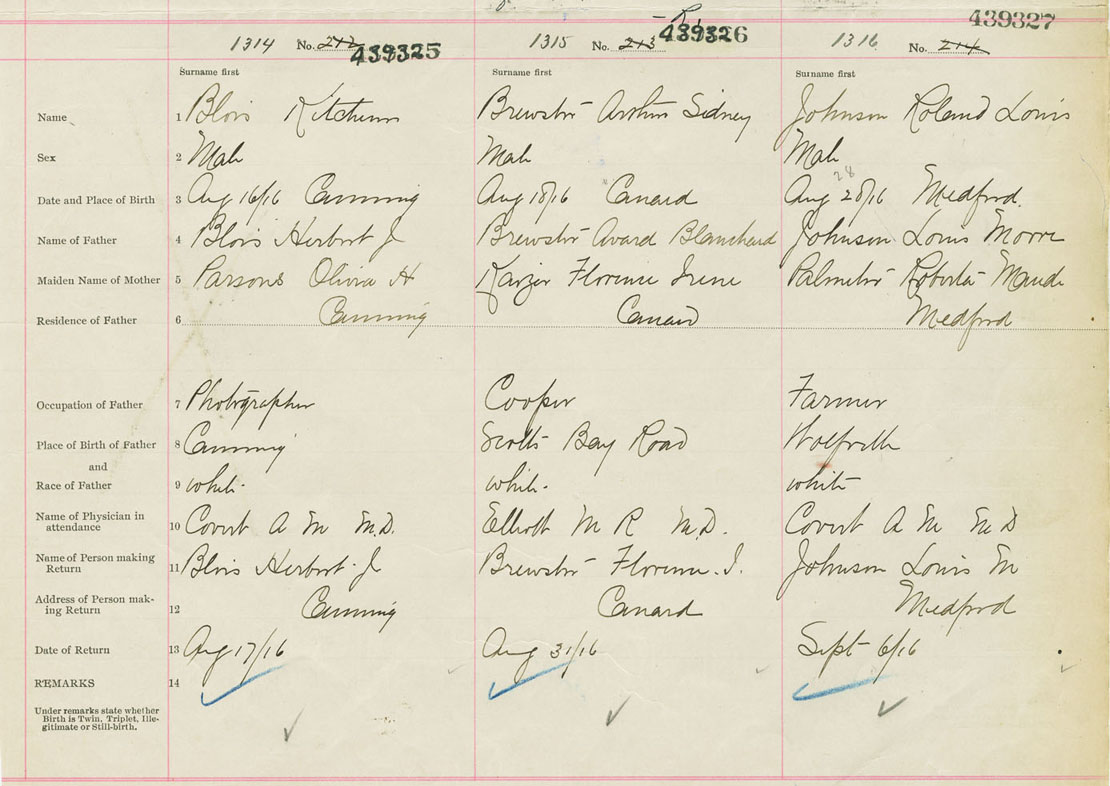 439327
1314 No. 212 439325 1315 No. 213 439326 1316 No. 214
Surname first Surname first Surname first
Name 1 Blois Kitchener Brewster Arthur Sidney Johnson Roland Louis
Sex 2 Male Male Male
28
Date and Place of Birth 3 Aug 16/16 Canning Aug 18/16 Canard Aug 28/16 Medford.
Name of Father 4 Blois Herbert J Brewster Avard Blanchard Johnson Louis Moore
Maiden Name of Mother 5 Parsons Olivia H Kaizer Florence Irene Palmeter Roberta Maude
Residence of Father 6 Canning Canard Medford
Occupation of Father 7 Photographer Cooper Farmer
Place of Birth of Father 8 Canning Scotts Bay Road Wolfville
and
Race of Father 9 white white white
Name of Physician in
attendance 10 Covert A M M.D. Elliott M R M.D. Covert A M M D
Name of Person making
Return 11 Blois Herbert J Brewster Florence. I. Johnson Louis M
Address of Person mak-
ing Return 12 Canning Canard Medford
Date of Return 13 Aug 17/16 Aug 31/16 Sept 6/16
REMARKS 14
Under remarks state whether
Birth is Twin, Triplet, Ille-
gitimate or Still-birth.